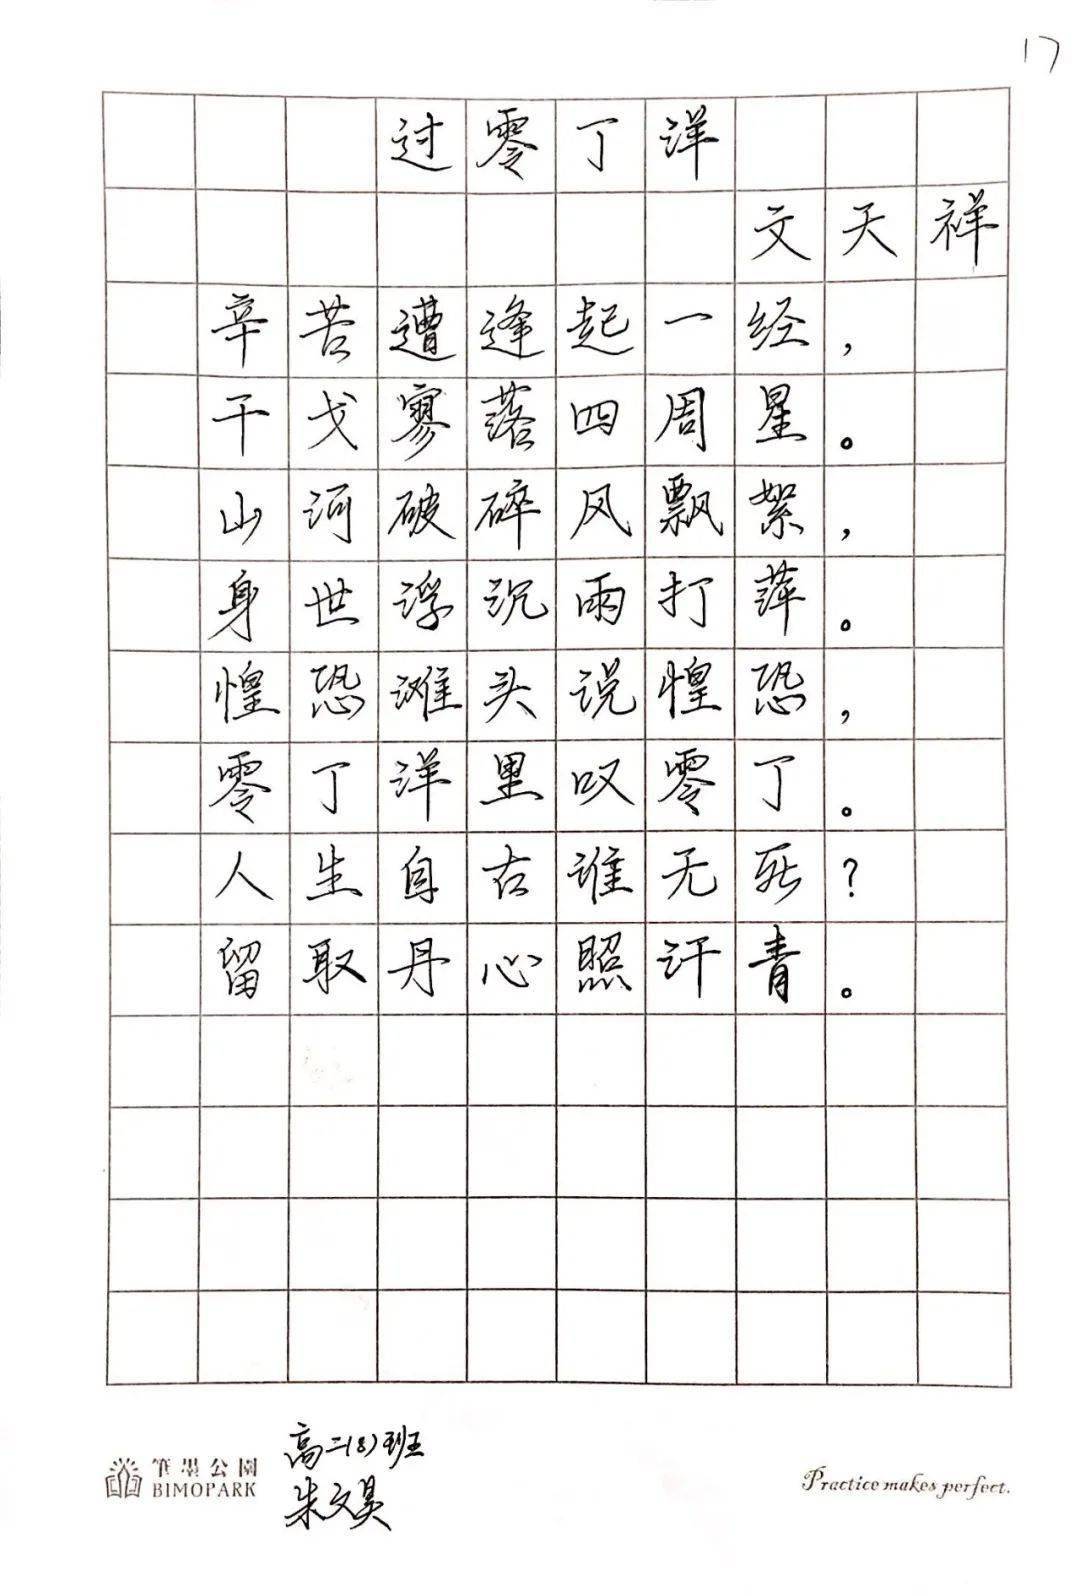 17
过零丁洋
文天祥
辛苦遭逢起一经，
干戈寥落四周星。
山河破碎风飘絮，
身世浮沉雨打萍。
惶恐滩头说惶恐，
零丁洋里叹零丁。
人生自古谁无死？
留取丹心照汗青。
高二(8)班
朱文昊
筆墨公園
BIMOPARK
Practice makes perfect.